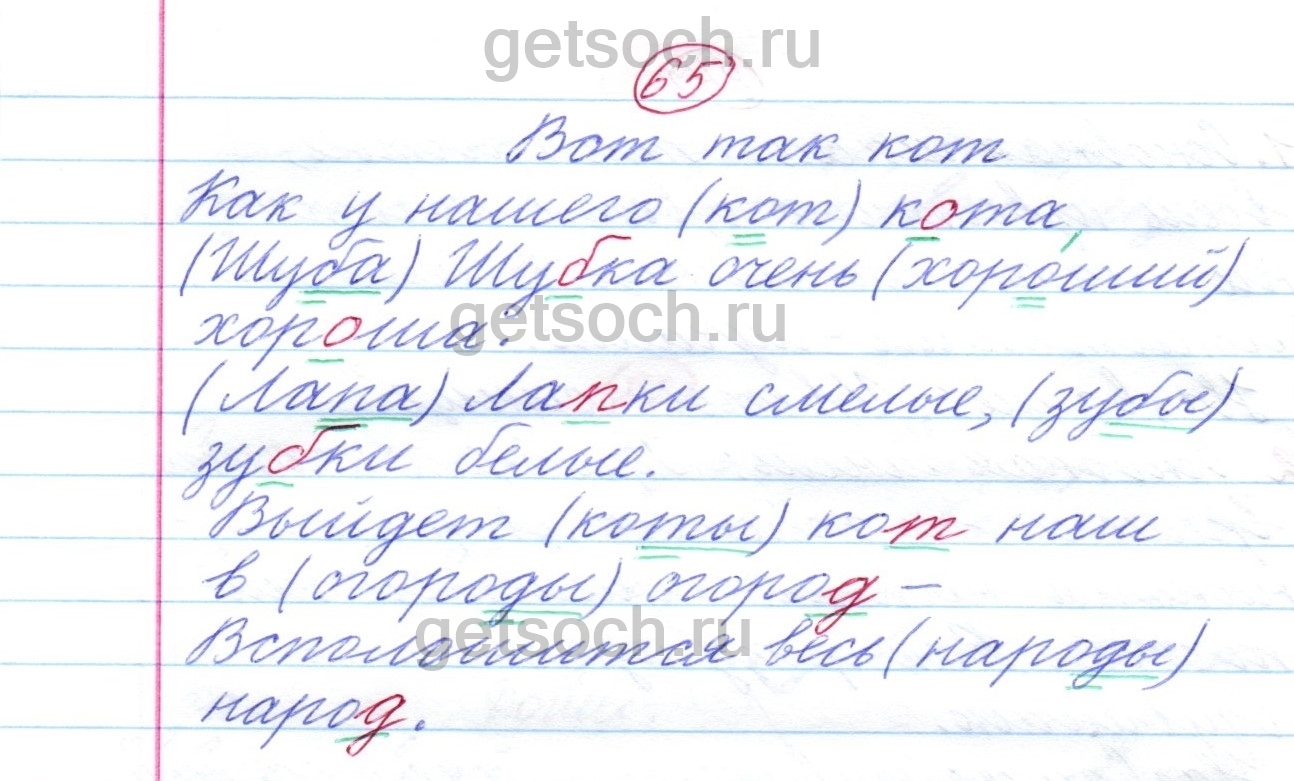 getsoch.ru
65
Вот так кот
Как у нашего (кот) кота
(Шуба) Шубка очень (хороший)
хороша:
getsoch.ru
(Лапа) Лапки смелые, (зубы)
зубки белые.
Выйдет (коты) кот наш
в (огороды) огород –
getsoch.ru
Всполошится весь (народы)
народ.